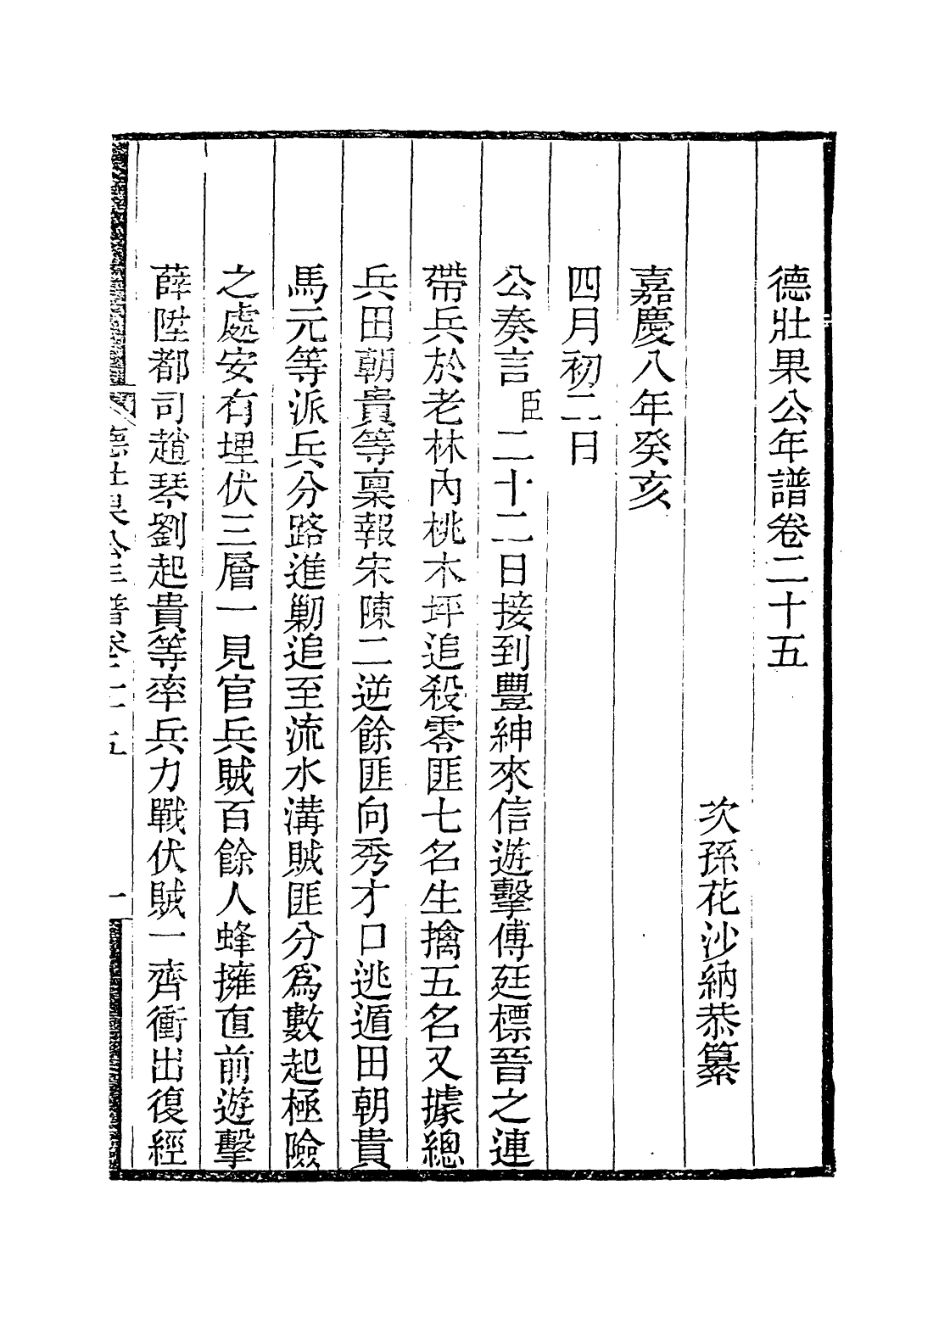 德壯果公年譜卷二十五
次孫花沙納恭纂
嘉慶八年癸亥
四月初二日
公奏言臣二十二日接到豐紳來信遊擊傅廷標晉之連
帶兵於老林內桃木坪追殺零匪七名生擒五名又據總
兵田朝貴等稟報宋陳二逆餘匪向秀才口逃遁田朝貴
馬元等派兵分路進勦追至流水溝賊匪分爲數起極險
之處安有埋伏三層一見官兵賊百餘人蜂擁直前遊擊
薛陞都司趙琴劉起貴等率兵力戰伏賊一齊衝出復經
德壯果公年譜卷二十五 一